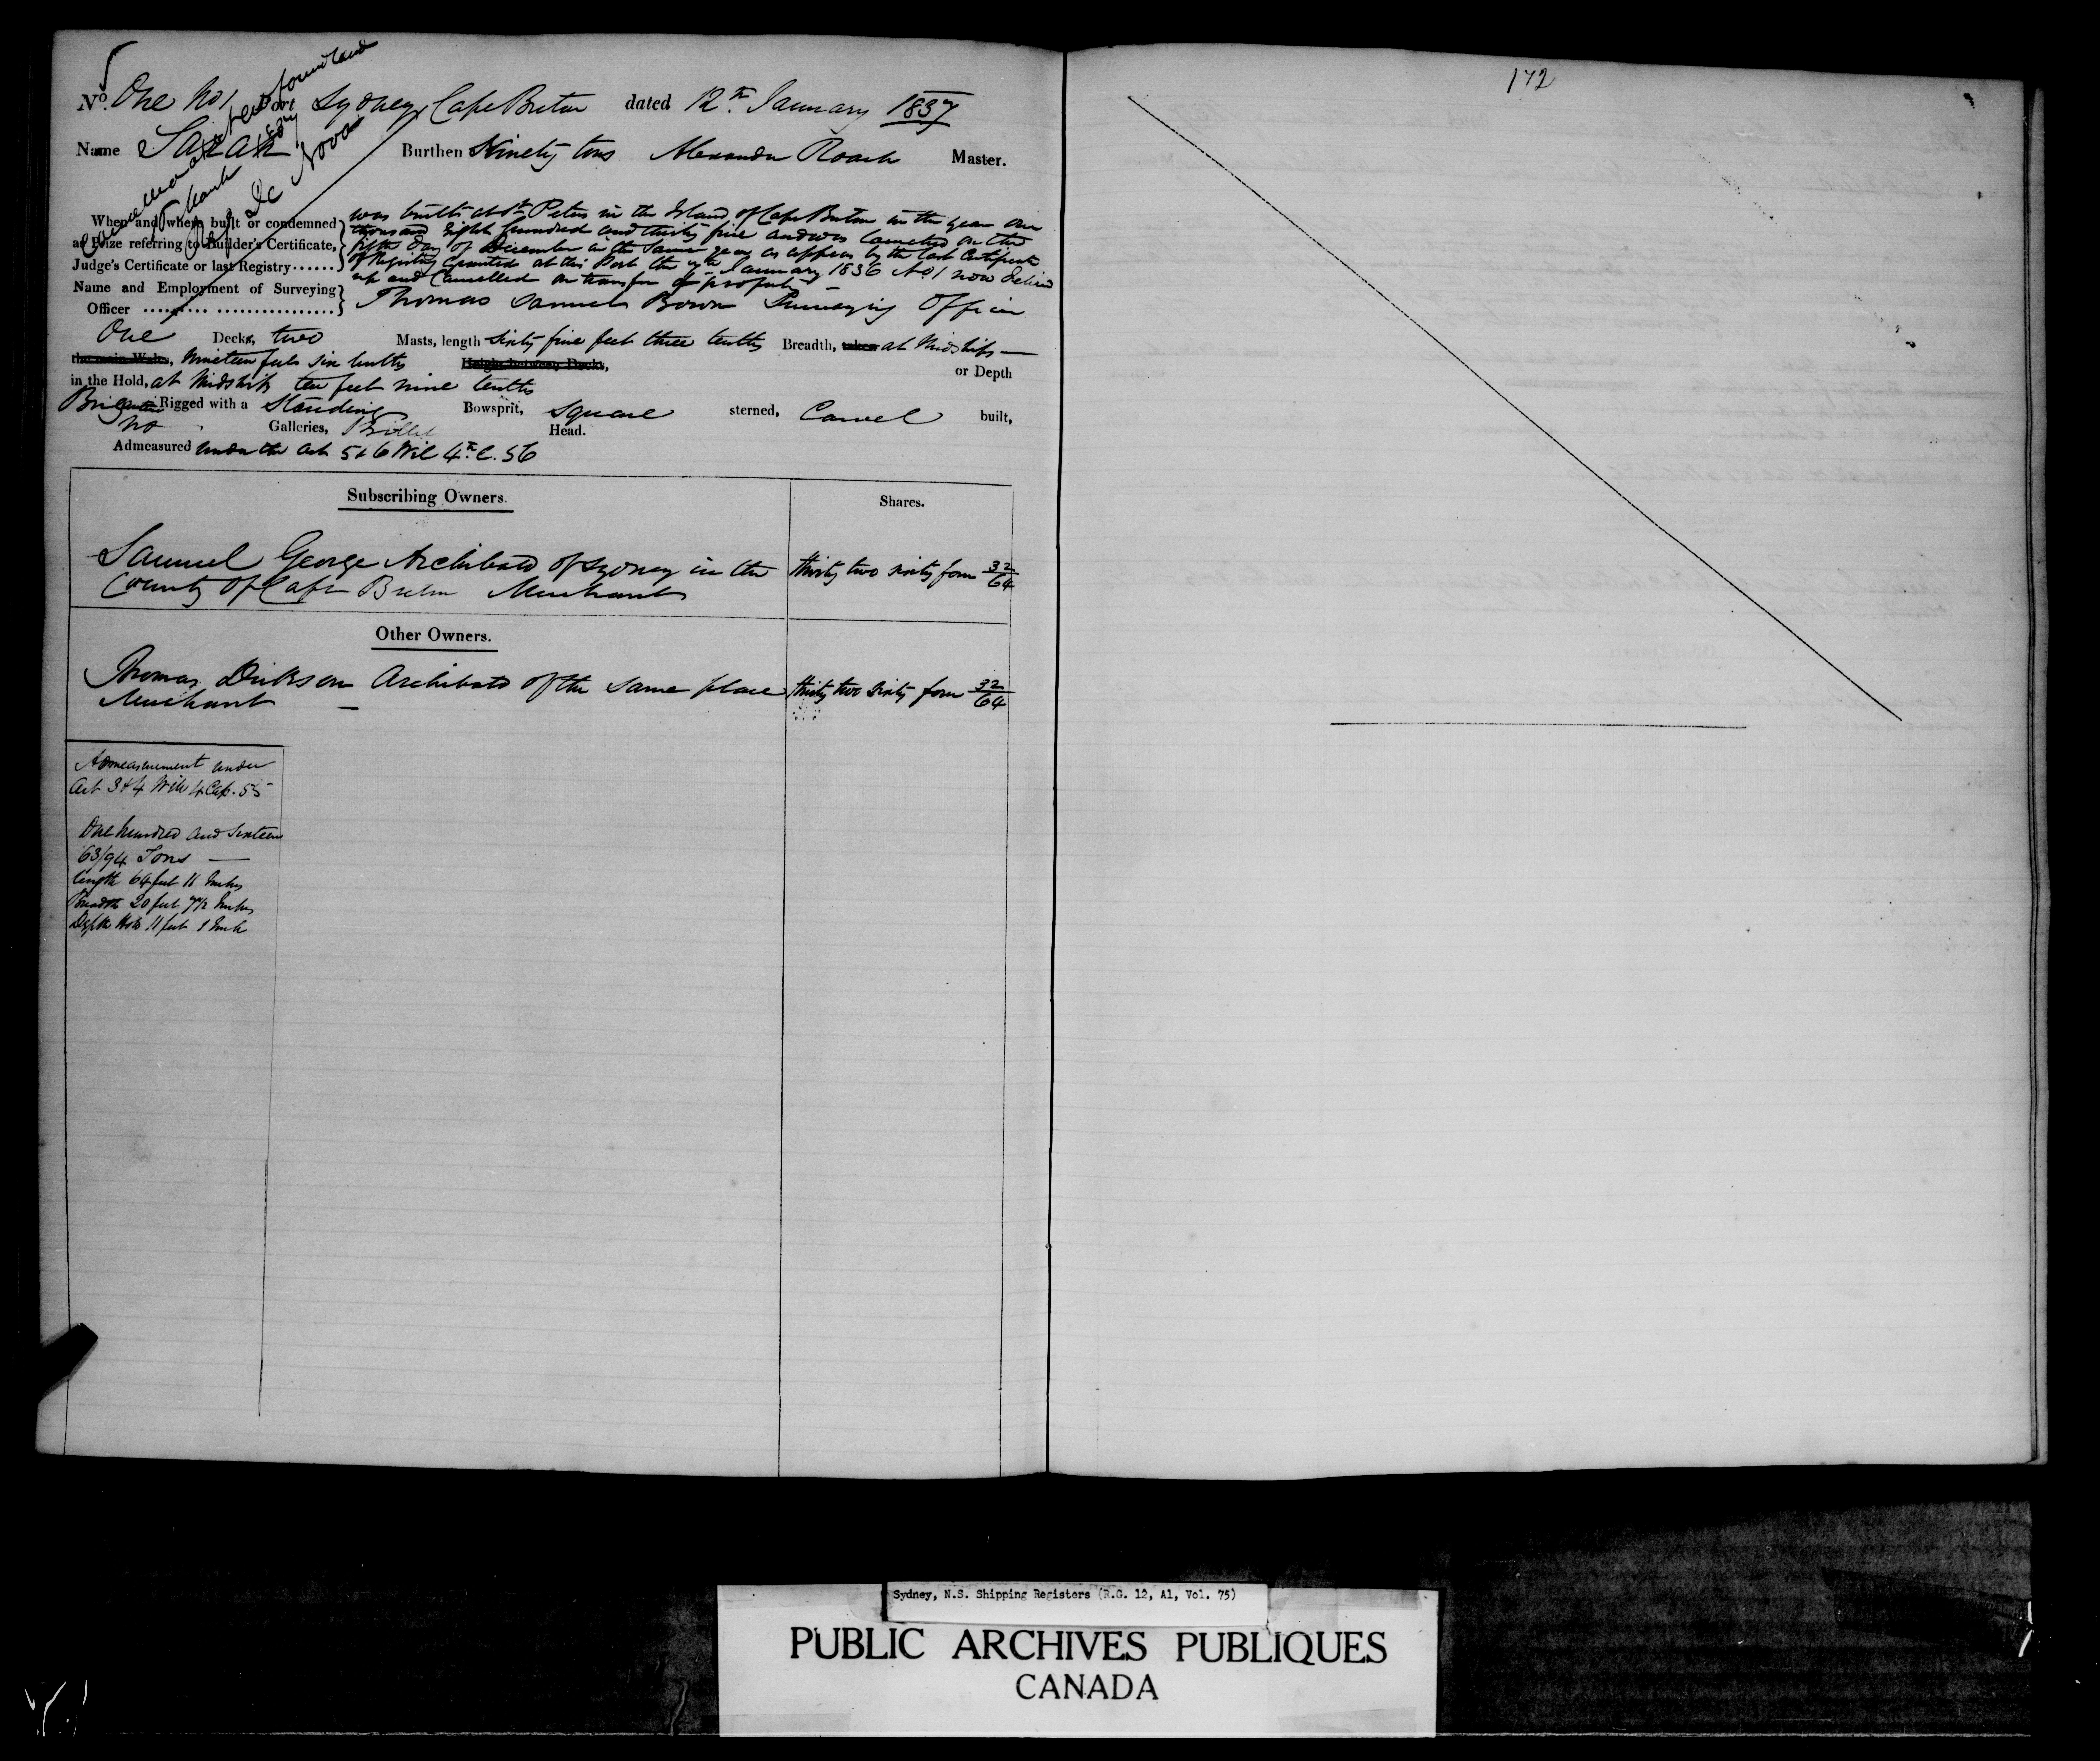 No. One No 1 Port Sydney Cape Breton dated 12th January 1837
Name Sarah Burthen Ninety tons Alexander Roach Master.
Newfoundland
De Novo
When and where built or condemned
as Prize referring to Builder's Certificate,
Judge's Certificate or last Registry......
was built at St Peters in the Island of Cape Breton in the year One
thousand Eight hundred and thirty five and was launched on the
fifth day of December in the same year as appears by the last Certificate
of Registry Granted at this Port the 7th January 1836 No 1 now delivd
up and Cancelled on transfer of property
Name and Employment of Surveying
Officer
Thomas Samuel Bown Surveying Officer
One Decks, two Masts, length sixty five feet three tenths Breadth, taken at Midships
the main Wales, Nineteen feet six tenths Height between Decks, or Depth
in the Hold, at Midships ten feet nine tenths
Brigantine Rigged with a Standing Bowsprit, square sterned, Carvel built,
no Galleries, Billet Head.
Admeasured under the Act 5 & 6 Wil 4th C. 56
Subscribing Owners. Shares.
Samuel George Archibald of Sydney in the thirty two sixty four 32/64
County of Cape Breton Merchant
Other Owners.
Thomas Dickson Archibald of the same place thirty two sixty four 32/64
Merchant
Admeasurement under
Act 3 & 4 Will 4 Cap. 55
One hundred and sixteen
63/94 Tons
length 64 feet 11 Inches
Breadth 20 feet 7 1/2 Inches
Depth Hold 11 feet 1 Inch
172
Sydney, N.S. Shipping Registers (R.G. 12, A1, Vol. 75)
PUBLIC ARCHIVES PUBLIQUES
CANADA